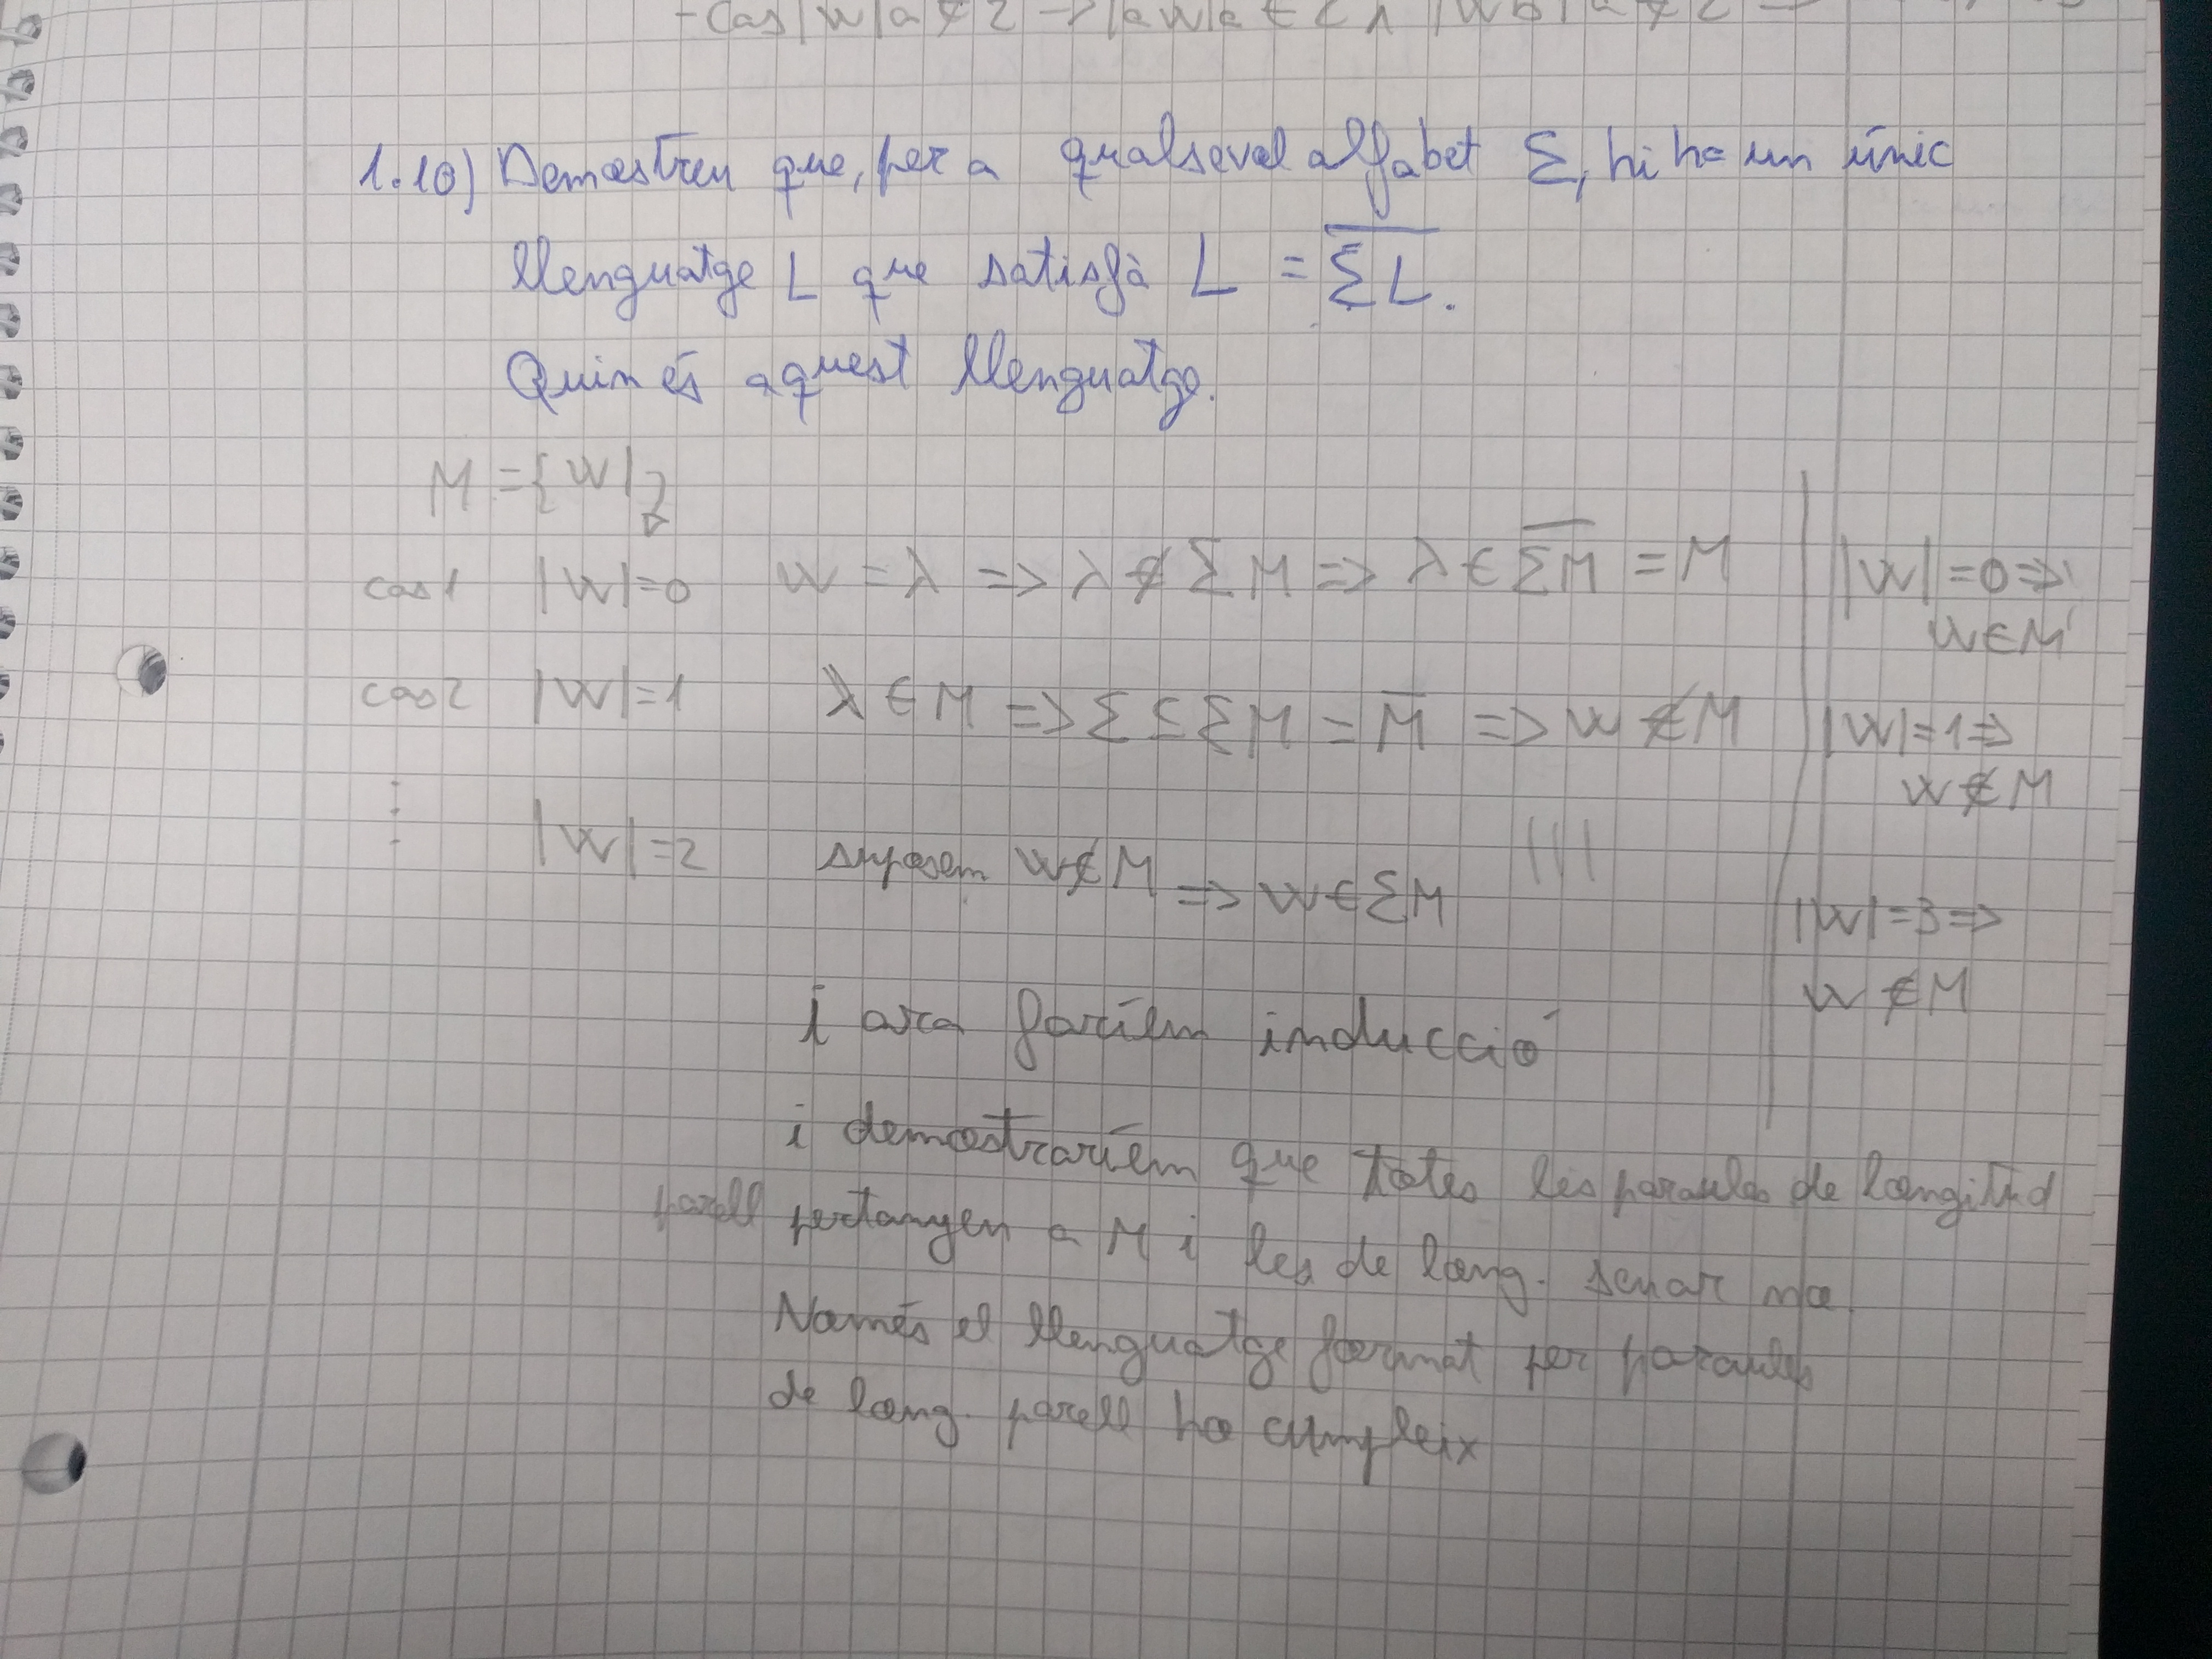 1.10) Demostreu que, per a qualsevol alfabet Σ, hi ha un únic
llenguatge L que satisfà L = \overline{ΣL}.
Quin és aquest llenguatge.
M = {w|}
cas 1 |w|=0 w = λ => λ ∉ ΣM => λ ∈ \overline{ΣM} = M
|w|=0 =>
w ∈ M
cas 2 |w|=1 λ ∈ M => Σ ⊆ ΣM = \overline{M} => w ∉ M
|w|=1 =>
w ∉ M
⋮ |w|=2 suposem w ∉ M => w ∈ ΣM
|w|=3 =>
w ∉ M
i ara faríem inducció
i demostraríem que totes les paraules de longitud
parell pertanyen a M i les de long. senar no
Només el llenguatge format per paraules
de long. parell ho cumpleix